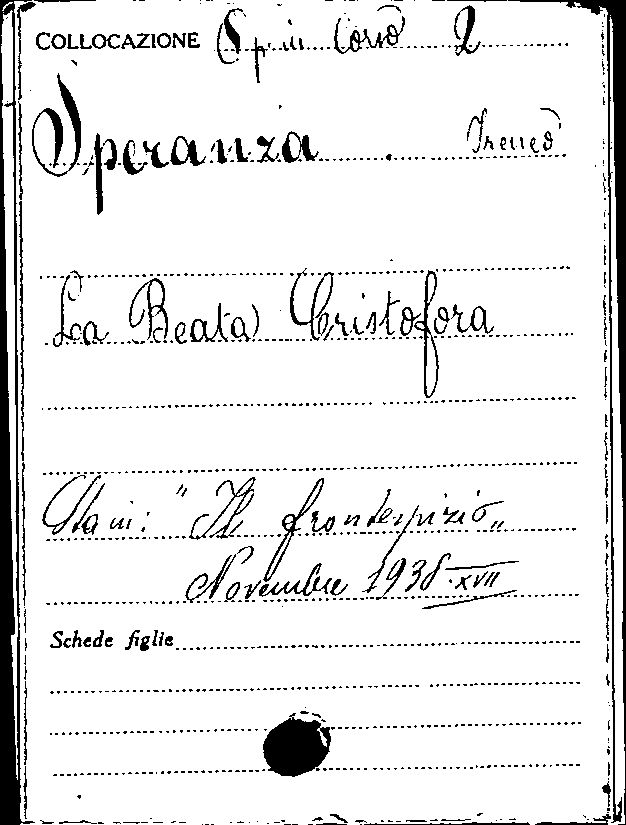 COLLOCAZIONE Op. in Corso 2
Speranza . Ireneo
La Beata Cristofora
Sta in: " Il frontespizio „
Novembre 1938 XVII
Schede figlie